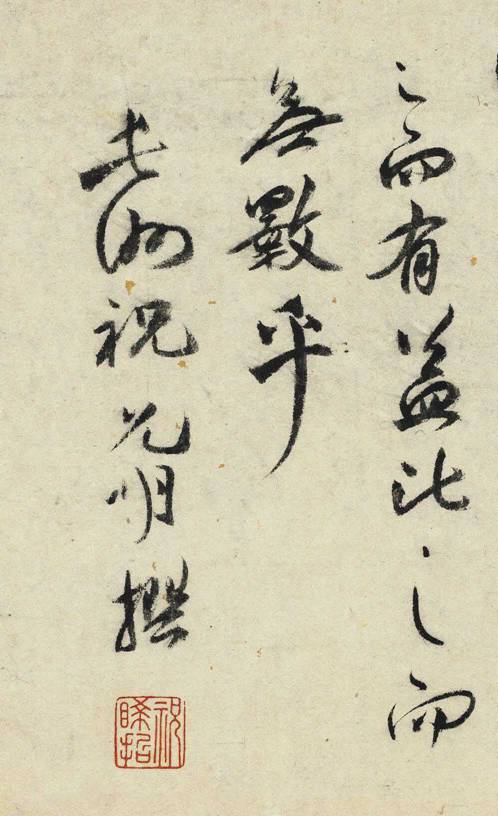 之而有益比之而
無斁乎
長洲祝允明撰
祝睎哲